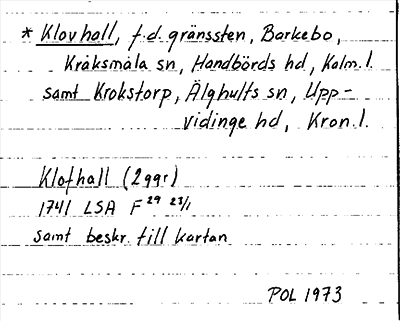 * Klovhall, f.d. gränssten, Barkebo,
Kråksmåla sn, Handbörds hd, Kalm.l.
samt Krokstorp, Älghults sn, Upp-
vidinge hd, Kron.l.
Klofhall (2 ggr)
1741 LSA F 29 23/1
samt beskr. till kartan
POL 1973